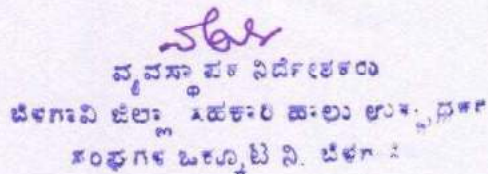 ವ್ಯವಸ್ಥಾಪಕ ನಿರ್ದೇಶಕರು
ಬೆಳಗಾವಿ ಜಿಲ್ಲಾ ಸಹಕಾರಿ ಹಾಲು ಉತ್ಪಾದಕರ
ಸಂಘಗಳ ಒಕ್ಕೂಟ ನಿ.